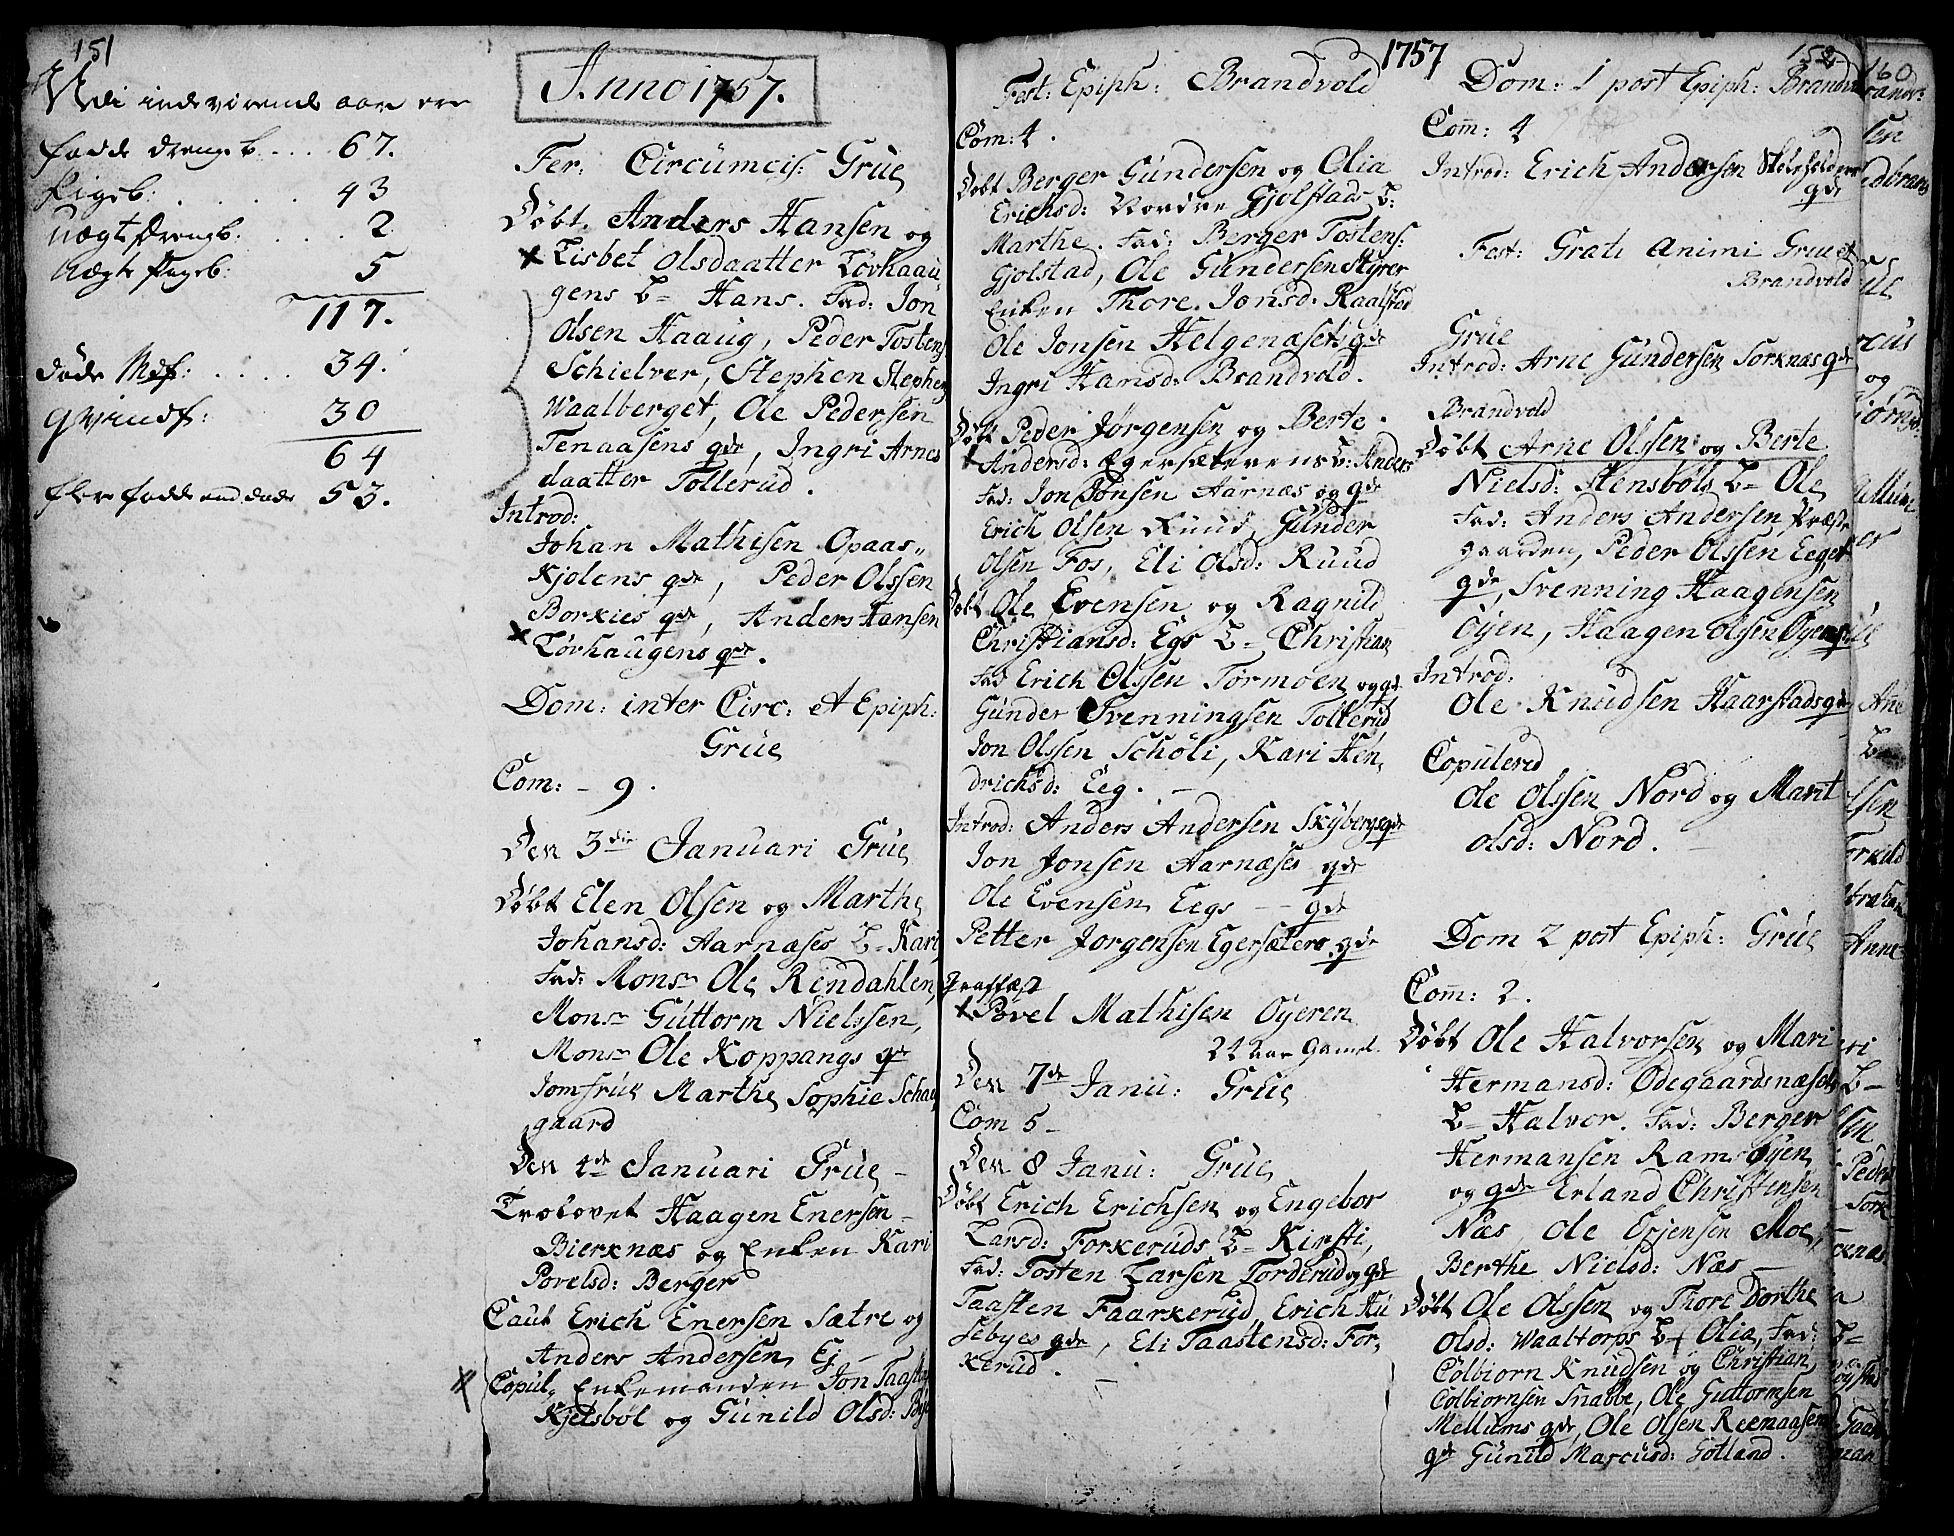 151
di indevirende aar ere
fødde drengeb. . . . 67.
Pigeb: . . . . . . 43
uægte drengb: . . . . 2
Uægte Pigeb: 5
117.
døde Mdf: . . . . . 34.
qvindf: 30
64
flere fødde end døde 53.
Anno 1757.
Fer: Circumcis: Grue
Døbt. Anders Hansen og
Lisbet olsdaatter Løvhaau-
gens B= Hans. Fad: Jon
Olsen Haaug, Peder Tostens
Schielver, Stephen Stephens
Waalberget, Ole Pedersen
Tenaasens qde, Ingri Arnes
daatter Tollerud.
Introd:
Johan Mathisen Opaas„
Kjolens qde, Peder Olssen
Borkies qde, Anders Hansen
Løvhaugens qde.
Dom: inter Circ: et Epiph:
Grue
Com: - 9.
Den 3die Januari Grue
Døbt Elen Olsen og Marthe
Johansd: Aarnæses B= Kari
Fad: Monsr Ole Rendahlen,
Monsr Guttorm Nielssen,
Monsr Ole Koppangs qde
Jomfrue Marthe Sophie Schau
gaard
Den 4de Januari Grue -
Trolovet Haagen Enersen -
Bierknæs og Enken Kari
Povelsd: Berger
Caut Erich Enersen Sætre og
Anders Andersen Ej -
Copul„ Enkemanden Jon Taasten
Kjelsbøl og Gunild Olsd:
1757
Fest: Epiph: Brandvold
Com: 4.
Døbt Berger Gundersen og Olia
Erichsd: Nordre Gjolstads B:
Marthe. Fad: Berger Tostens:
Gjolstad, Ole Gundersen Skyrer
Enken Thore Jonsd: Kaalstad
Ole Jonsen Helgenæset qde
Ingri Hansd: Brandvold.
Døbt Peder Jørgensen og Berte.
Andersd: Egersæterens B: Anders
Fad: Jon Jonsen Aarnæs og qde
Erich Olsen Ruud, Gunder
Olsen Fos, Eli Olsd: Ruud
Døbt Ole Evensen og Ragnild
Christiansd: Egs B= Christian
Fad Erich Olssen Tormoen og qde
Gunder Svenningsen Tollerud
Jon Olssen Schøli, Kari Hen,
drichsd: Eeg. -
Introd: Anders Andersen Skybergs qde
Jon Jonsen Aarnæses qde
Ole Evensen Eegs - - qde
Petter Jorgensen Egersæters qde
Graffæst
Povel Mathisen Øyeren
22 aar Gamel.
Den 7de Janu: Grue
Com 5 -
Den 8 Janu: Grue
Døbt Erich Erichsen og Engebor
Larsd: Forkeruds B= Kirsti,
Fad: Tosten Larsen Torderud og qde
Taasten Faarkerud, Erich Hu
sebyes qde, Eli Taastensd: For,
kerud.
152
Dom: 1 post Epiph: Brandv
Com: 4
Introd: Erich Andersen
qde
Fest: Grati animi Grue et
Brandvold
Grue
Introd: Arne Gundersen Torknæs qde
Brandvold
Døbt Arne Olssen og Berte
Nielsd: Stensbøls B= Ole
Fad: Anders Andersen Præste
gaarden, Peder Olssen Eeget
qde, Svenning Haagensen
Oyen, Haagen olsen Oyens
Introd:
Ole Knudsen Haarstads qde
Copulered
Ole Olssen Nord og Marit
olsd: Nord. -
Dom 2 post Epiph: Grue
Com: 2.
Døbt Ole Halvorsen og Mari
Hermansd: Ødegaardsnæsets
B= Halvor. Fad: Berger
Hermansen Rams Øyen
og qde Erland Christensen
Næs, Ole Erjensen Moe,
Berthe Nielsd: Næs -
Døbt Ole Olssen og Thore Dorthe
Olsd: Waaltorps B= Olia, Fad:
Colbiorn Knudsen og Christian
Colbiornsen Snabbe, Ole Guttormsen
Mellums qde, Ole Olsen Reemaasen
qde Gunild Marcusd: Gotland.
160